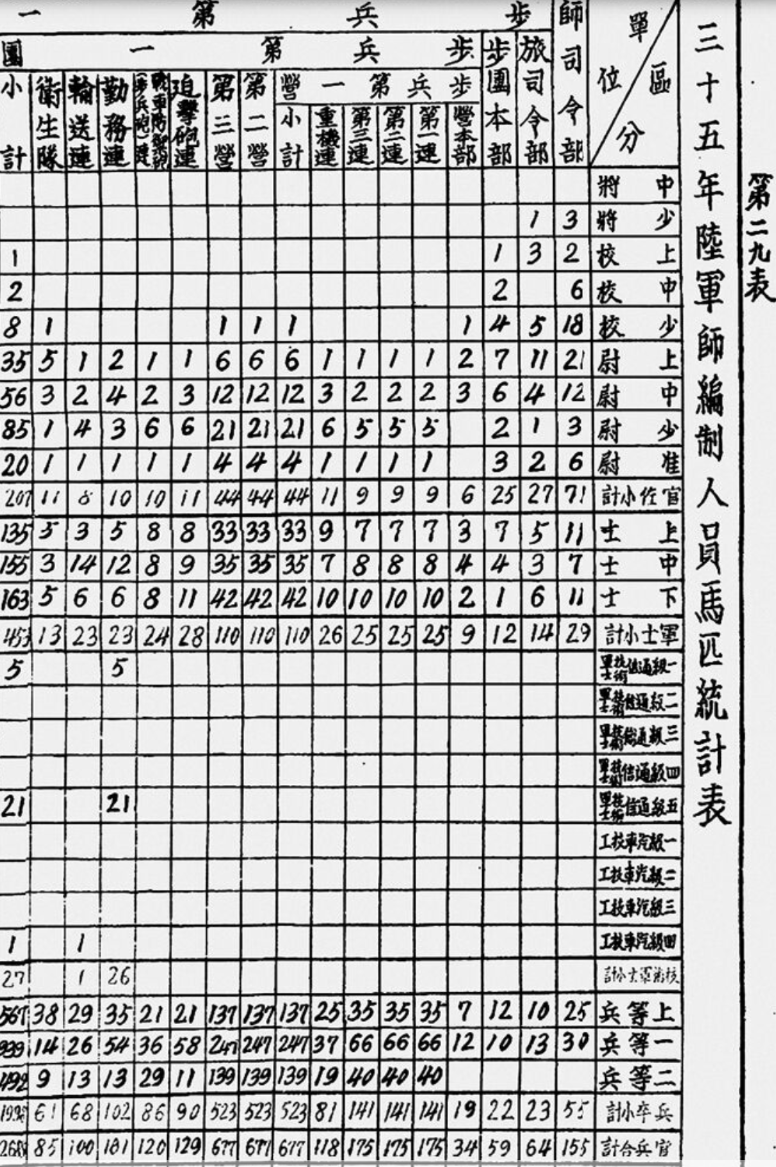 第二九表
三十五年陸軍師編制人員馬匹統計表
單位
區分
師司令部
旅司令部
步兵第一
步兵第一團
步團本部
步兵第一營
營本部
第一連
第二連
第三連
重機連
小計
第二營
第三營
迫擊砲連
勤務連
輸送連
衛生隊
小計
中將
少將 3 1
上校 2 3 1 1
中校 6 2 2
少校 18 5 4 1 1 1 1 1 8
上尉 21 11 7 2 1 1 1 1 6 6 6 1 1 2 1 5 35
中尉 12 4 6 3 2 2 2 3 12 12 12 3 2 4 2 3 56
少尉 3 1 2 5 5 5 6 21 21 21 6 6 3 4 1 85
准尉 6 2 3 1 1 1 1 4 4 4 1 1 1 1 1 20
官佐小計 71 27 25 6 9 9 9 11 44 44 44 11 10 10 8 11 207
上士 11 5 7 3 7 7 7 9 33 33 33 8 8 5 3 5 135
中士 7 3 4 4 8 8 8 7 35 35 35 9 8 12 14 3 155
下士 11 6 1 2 10 10 10 10 42 42 42 11 8 6 6 5 163
軍士小計 29 14 12 9 25 25 25 26 110 110 110 28 24 23 23 13 453
一級通信技術軍士 5 5
二級通信技術軍士
三級通信技術軍士
四級通信技術軍士
五級通信技術軍士 21 21
一級汽車技工
二級汽車技工
三級汽車技工
四級汽車技工 1 1
技術軍士小計 26 1 27
上等兵 25 10 12 7 35 35 35 25 137 137 137 21 21 35 29 38 567
一等兵 30 13 10 12 66 66 66 37 247 247 247 58 36 54 26 14
二等兵 40 40 40 19 139 139 139 11 29 13 13 9 492
兵卒小計 55 23 22 19 141 141 141 81 523 523 523 90 86 102 68 61
官兵合計 155 64 59 34 175 175 175 118 677 677 677 129 120 181 100 85